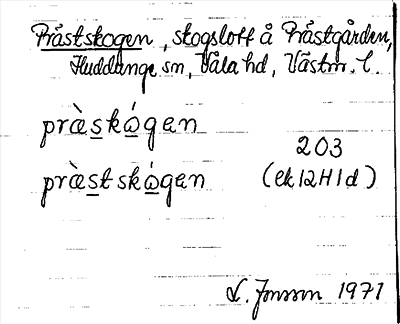 Prästskogen, skogslott å Prästgården,
Huddunge sn, Våla hd, Västm. l.
præ̀skó̱gen
203
præ̀stskó̱gen
(ek12H1d)
L. Jonsson 1971